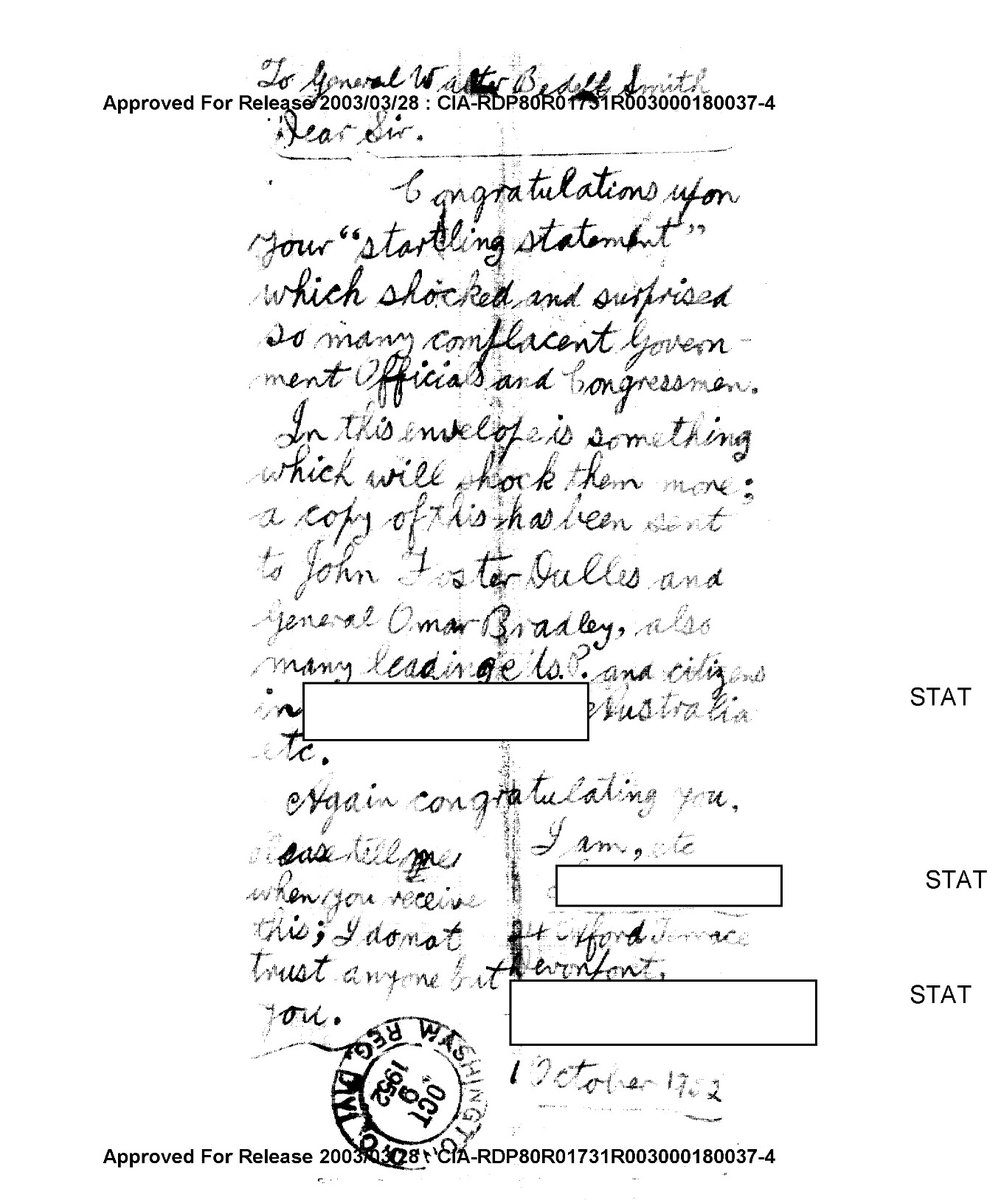 To General Walter Bedell Smith
Approved For Release 2003/03/28 : CIA-RDP80R01731R003000180037-4
Dear Sir.
Congratulations upon
your “startling statement”
which shocked and surprised
so many complacent Govern-
ment Officials and Congressmen.
In this envelope is something
which will shock them more;
a copy of this has been sent
to John Foster Dulles and
General Omar Bradley, also
many leading
and citizens
in
Australia
STAT
etc.
Again congratulating you,
I am, etc
Please tell me
when you receive
this; I do not
trust anyone but
you.
STAT
Oxford Terrace
Devonport.
STAT
1 October 1952
WASHINGTON, D.C. REG. DIV.
OCT
9
1952
Approved For Release 2003/03/28 : CIA-RDP80R01731R003000180037-4